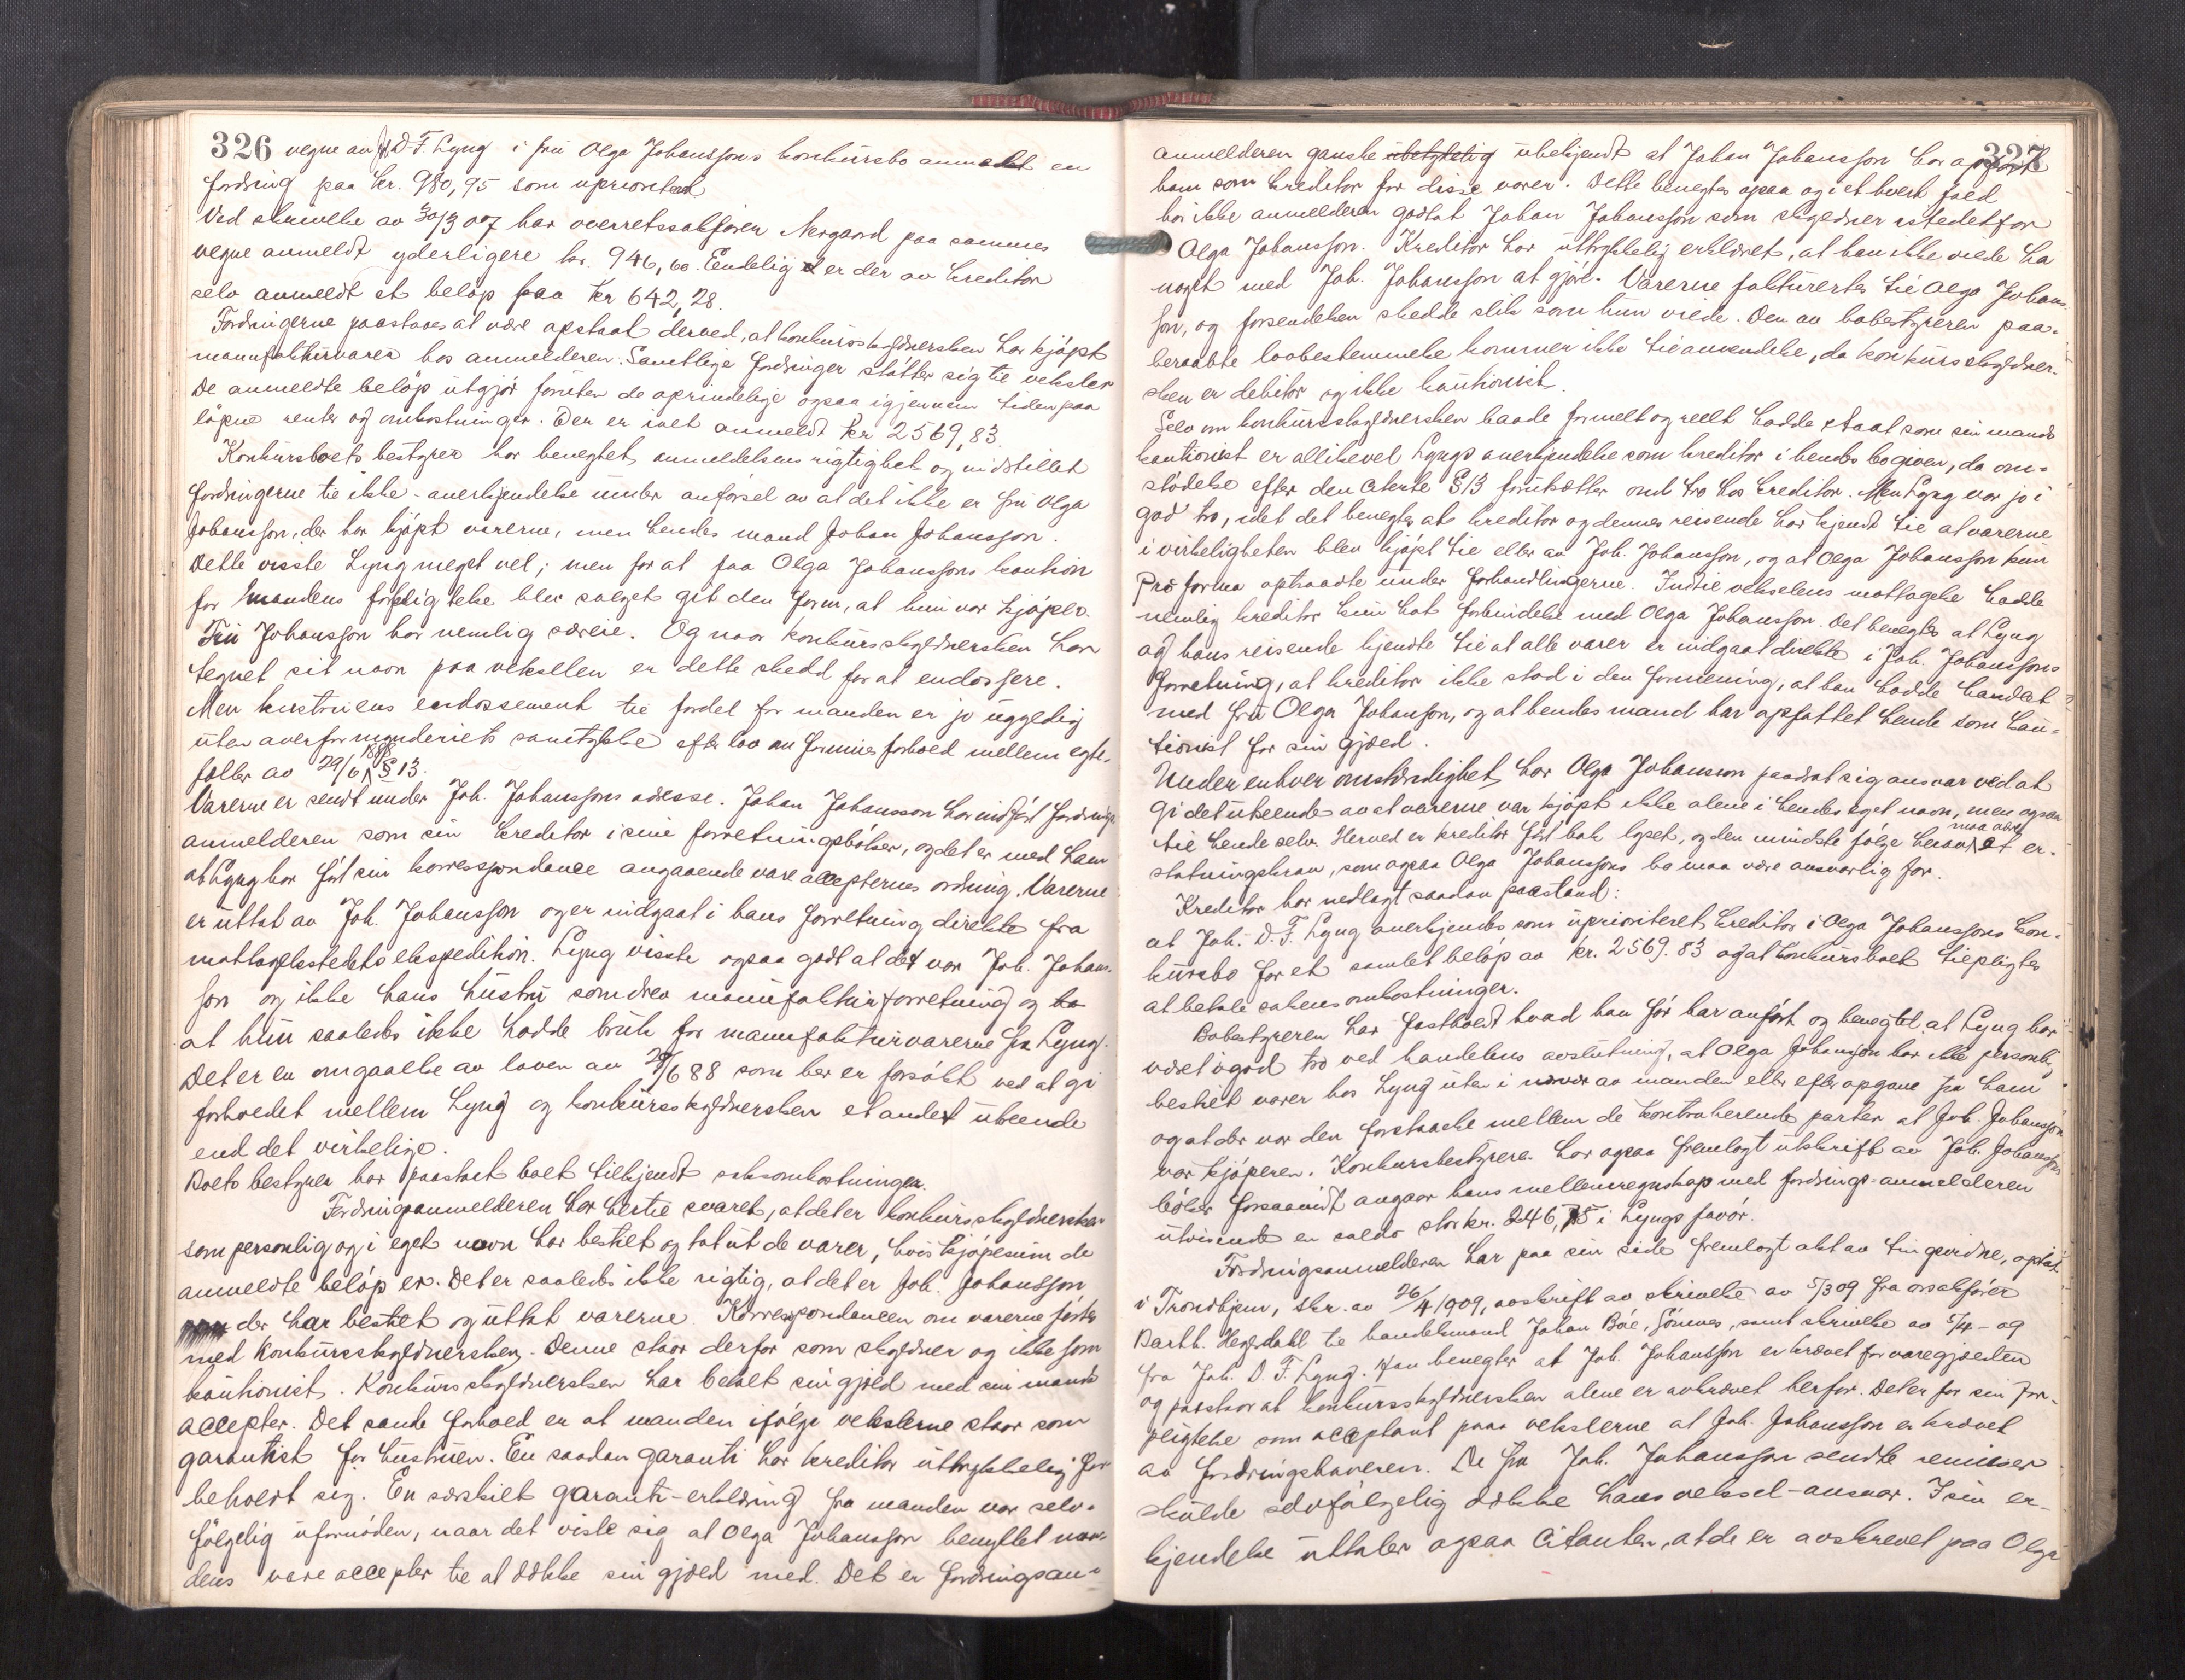 326 vegne av Joh. D. F. Lyng i fru Olga Johanssons konkursbo anmeldt en
fordring paa kr. 980,95 som uprioritert.
Ved skrivelse av 30/3 007 har overretssakfører Nergaard paa sammes
vegne anmeldt yderligere kr. 946,60. Endelig er der av kreditor
selv anmeldt et beløp paa kr 642,28.
Fordringerne paastaaes at være opstaat derved, at konkursskyldnersken har kjøpt
manufakturvarer hos anmelderen. Samtlige fordringer støtter sig til veksler
De anmeldte beløp utgjør foruten de oprindelige ogsaa igjennem tiden paa
løpne renter og omkostninger. Der er ialt anmeldt kr 2569,83.
Konkursboets bestyrer har benegtet anmeldelsens rigtighet og indstillet
fordringerne til ikke-anerkjendelse under anførsel av at det ikke er fru Olga
Johansson, der har kjøpt varerne, men hendes mand Johan Johansson.
Dette visste Lyng meget vel; men for at faa Olga Johanssons kaution
for mandens forpligtelse blev salget git den form, at hun var kjøper.
Fru Johansson har nemlig særeie. Og naar konkursskyldnersken har
tegnet sit navn paa vekselen er dette skedd for at endossere.
Men hustruens endossement til fordel for manden er jo ugyldig
uten overformynderiets samtykke efter lov om formuesforhold mellem egte-
fæller av 29/6 1888 § 13.
Varerne er sendt under Joh. Johanssons adresse. Johan Johansson har indført fordrings
anmelderen som sin kreditor i sine forretningsbøker, og det er med ham
at Lyng har ført sin korrespondance angaaende vareaccepternes ordning. Varerne
er uttat av Joh. Johansson og er indgaat i hans forretning direkte fra
mottagelsestedets ekspedition. Lyng visste ogsaa godt at det var Joh. Johans-
son og ikke hans hustru som drev manufakturforretning og ha
at hun saaledes ikke hadde bruk for manufakturvarerne fra Lyng.
Det er en omgaaelse av loven av 29/6 88 som her er forsøkt ved at gi
forholdet mellem Lyng og konkursskyldnersken et andet utseende
end det virkelige.
Boets bestyrer har paastaat boet tilkjendt saksomkostninger.
Fordringsanmelderen har hertil svaret, at det er konkursskyldnersken
som personlig og i eget navn har bestilt og tat ut de varer, hvis kjøpesum de
anmeldte beløp er. Det er saaledes ikke rigtig, at det er Joh. Johansson
der har bestilt og uttat varerne. Korrespondancen om varerne førtes
med konkursskyldnersken. Denne staar derfor som skyldner og ikke som
kautionist. Konkursskyldnersken har betalt sin gjæld med sin mands
accepter. Det sande forhold er at manden ifølge vekslerne staar som
garantist for hustruen. En saadan garanti har kreditor uttrykkelig for
beholdt sig. En særskilt garanti-erklæring fra manden var selv-
følgelig ufornøden, naar det viste sig at Olga Johansson benyttet man-
dens vareaccepter til at dække sin gjæld med. Det er fordringsan-
327
anmelderen ganske ubetydelig ubekjendt at Johan Johansson har opført
ham som kreditor for disse varer. Dette benegtes ogsaa og i et hvert fald
har ikke anmelderen godtat Johan Johansson som skyldner istedetfor
Olga Johansson. Kreditor har uttrykkelig erklæret, at han ikke vilde ha
noget med Joh. Johansson at gjøre. Varerne fakturertes til Olga Johans-
son, og forsendelsen skedde slik som hun vilde. Den av bobestyreren paa-
beraabte lovbestemmelse kommer ikke til anvendelse, da konkursskyldner-
sken er debitor og ikke kautionist.
Selv om konkursskyldnersken baade formelt og reelt hadde staat som sin mands
kautionist er allikevel Lyngs anerkjendelse som kreditor i hendes bo given, da om-
stødelse efter den citerte § 13 forutsætter ond tro hos kreditor. Men Lyng var jo i
god tro, idet det benegtes at kreditor og dennes reisende har kjendt til at varerne
i virkeligheten blev kjøpt til eller av Joh. Johansson, og at Olga Johansson kun
pro forma optraadte under forhandlingerne. Indtil vekselens mottagelse hadde
nemlig kreditor kun hat forbindelse med Olga Johansson. Det benegtes at Lyng
og hans reisende kjendte til at alle varer er indgaat direkte i Joh. Johanssons
forretning, at kreditor ikke stod i den formening, at han hadde handlet
med fru Olga Johanson, og at hendes mand har opfattet hende som kau-
tionist for sin gjæld.
Under enhver omstændighet har Olga Johanson paadrat sig ansvar ved at
gi det utseende av at varerne var kjøpt ikke alene i hendes eget navn, men ogsaa
til hende selv. Herved er kreditor ført bak lyset, og den mindste følge herav maa være et er-
statningskrav, som ogsaa Olga Johanssons bo maa være ansvarlig for.
Kreditor har nedlagt saadan paastand:
at Joh. D. F. Lyng anerkjendes som uprioriteret kreditor i Olga Johanssons kon-
kursbo for et samlet beløp av kr. 2569.83 og at konkursboet tilpligtes
at betale sakens omkostninger.
Bobestyreren har fastholdt hvad han før har anført og benegtet at Lyng har
været i god tro ved handelens avslutning, at Olga Johansson har ikke personlig
bestilt varer hos Lyng uten i nærvær av manden eller efter opgave fra ham
og at der var den forstaaelse mellem de kontraherende parter at Joh. Johansson
var kjøperen. Konkursbestyrer har ogsaa fremlagt utskrift av Joh. Johanssons
bøker forsaavidt angaar hans mellemregnskap med fordrings-anmelderen
utvisende en saldo stor kr. 246,75 i Lyngs favør.
Fordringsanmelderen har paa sin side fremlagt akt av tingsvidne, optat
i Trondhjem, skr. av 26/4 1909, avskrift av skrivelse av 5/3 09 fra orsakfører
Barth. Hegstdahl til handelsmand Johan Bøe, Sømnes, samt skrivelse av 5/4-09
fra Joh. D. F. Lyng. Han benegter at Joh. Johansson er krævet for varegjælden
og paastaar at konkursskyldnersken alene er avkrævet herfor. Det er for sin for-
pligtelse som acceptant paa vekslerne at Joh. Johansson er krævet
av fordringshaveren. De fra Joh. Johansson sendte remisser
skulde selvfølgelig dække hans veksel-ansvar. I sin er-
kjendelse uttaler ogsaa citanten, at de er avskrevet paa Olga